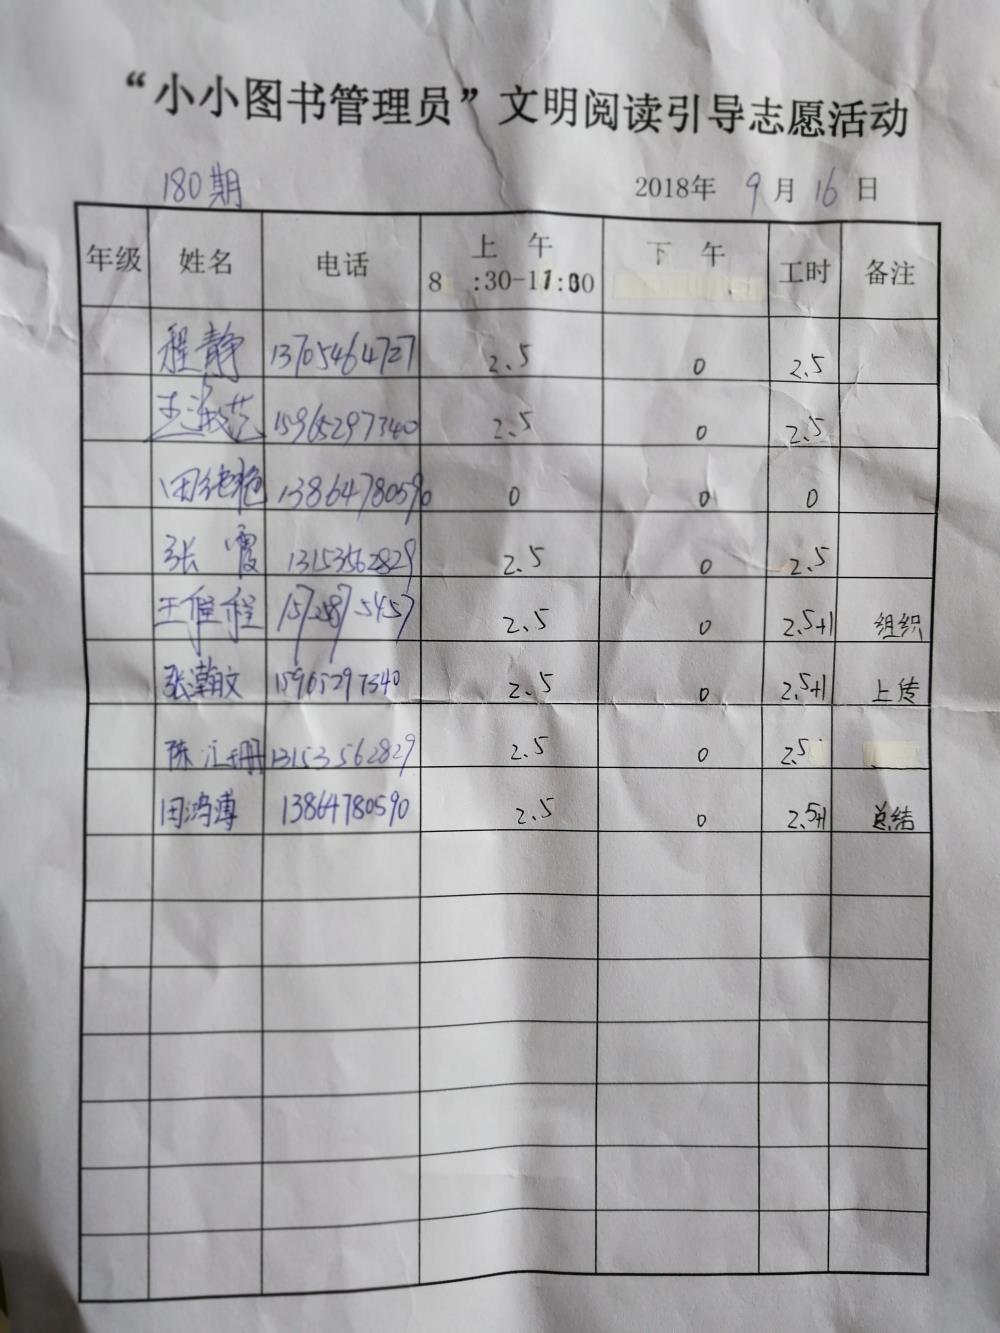 “小小图书管理员”文明阅读引导志愿活动
180期 2018年 9月 16日
年级 姓名 电话 上 午 8 :30-11:30 下 午 工时 备注
程静 13705464727 2.5 0 2.5
15965297340 2.5 0 2.5
田 13864780590 0 0 0
张霞 13153562829 2.5 0 2.5
王程程 15725875457 2.5 0 2.5+1 组织
张瀚文 15965297340 2.5 0 2.5+1 上传
陈汇珊 13153562829 2.5 0 2.5
田鸿溥 13864780590 2.5 0 2.5+1 总结